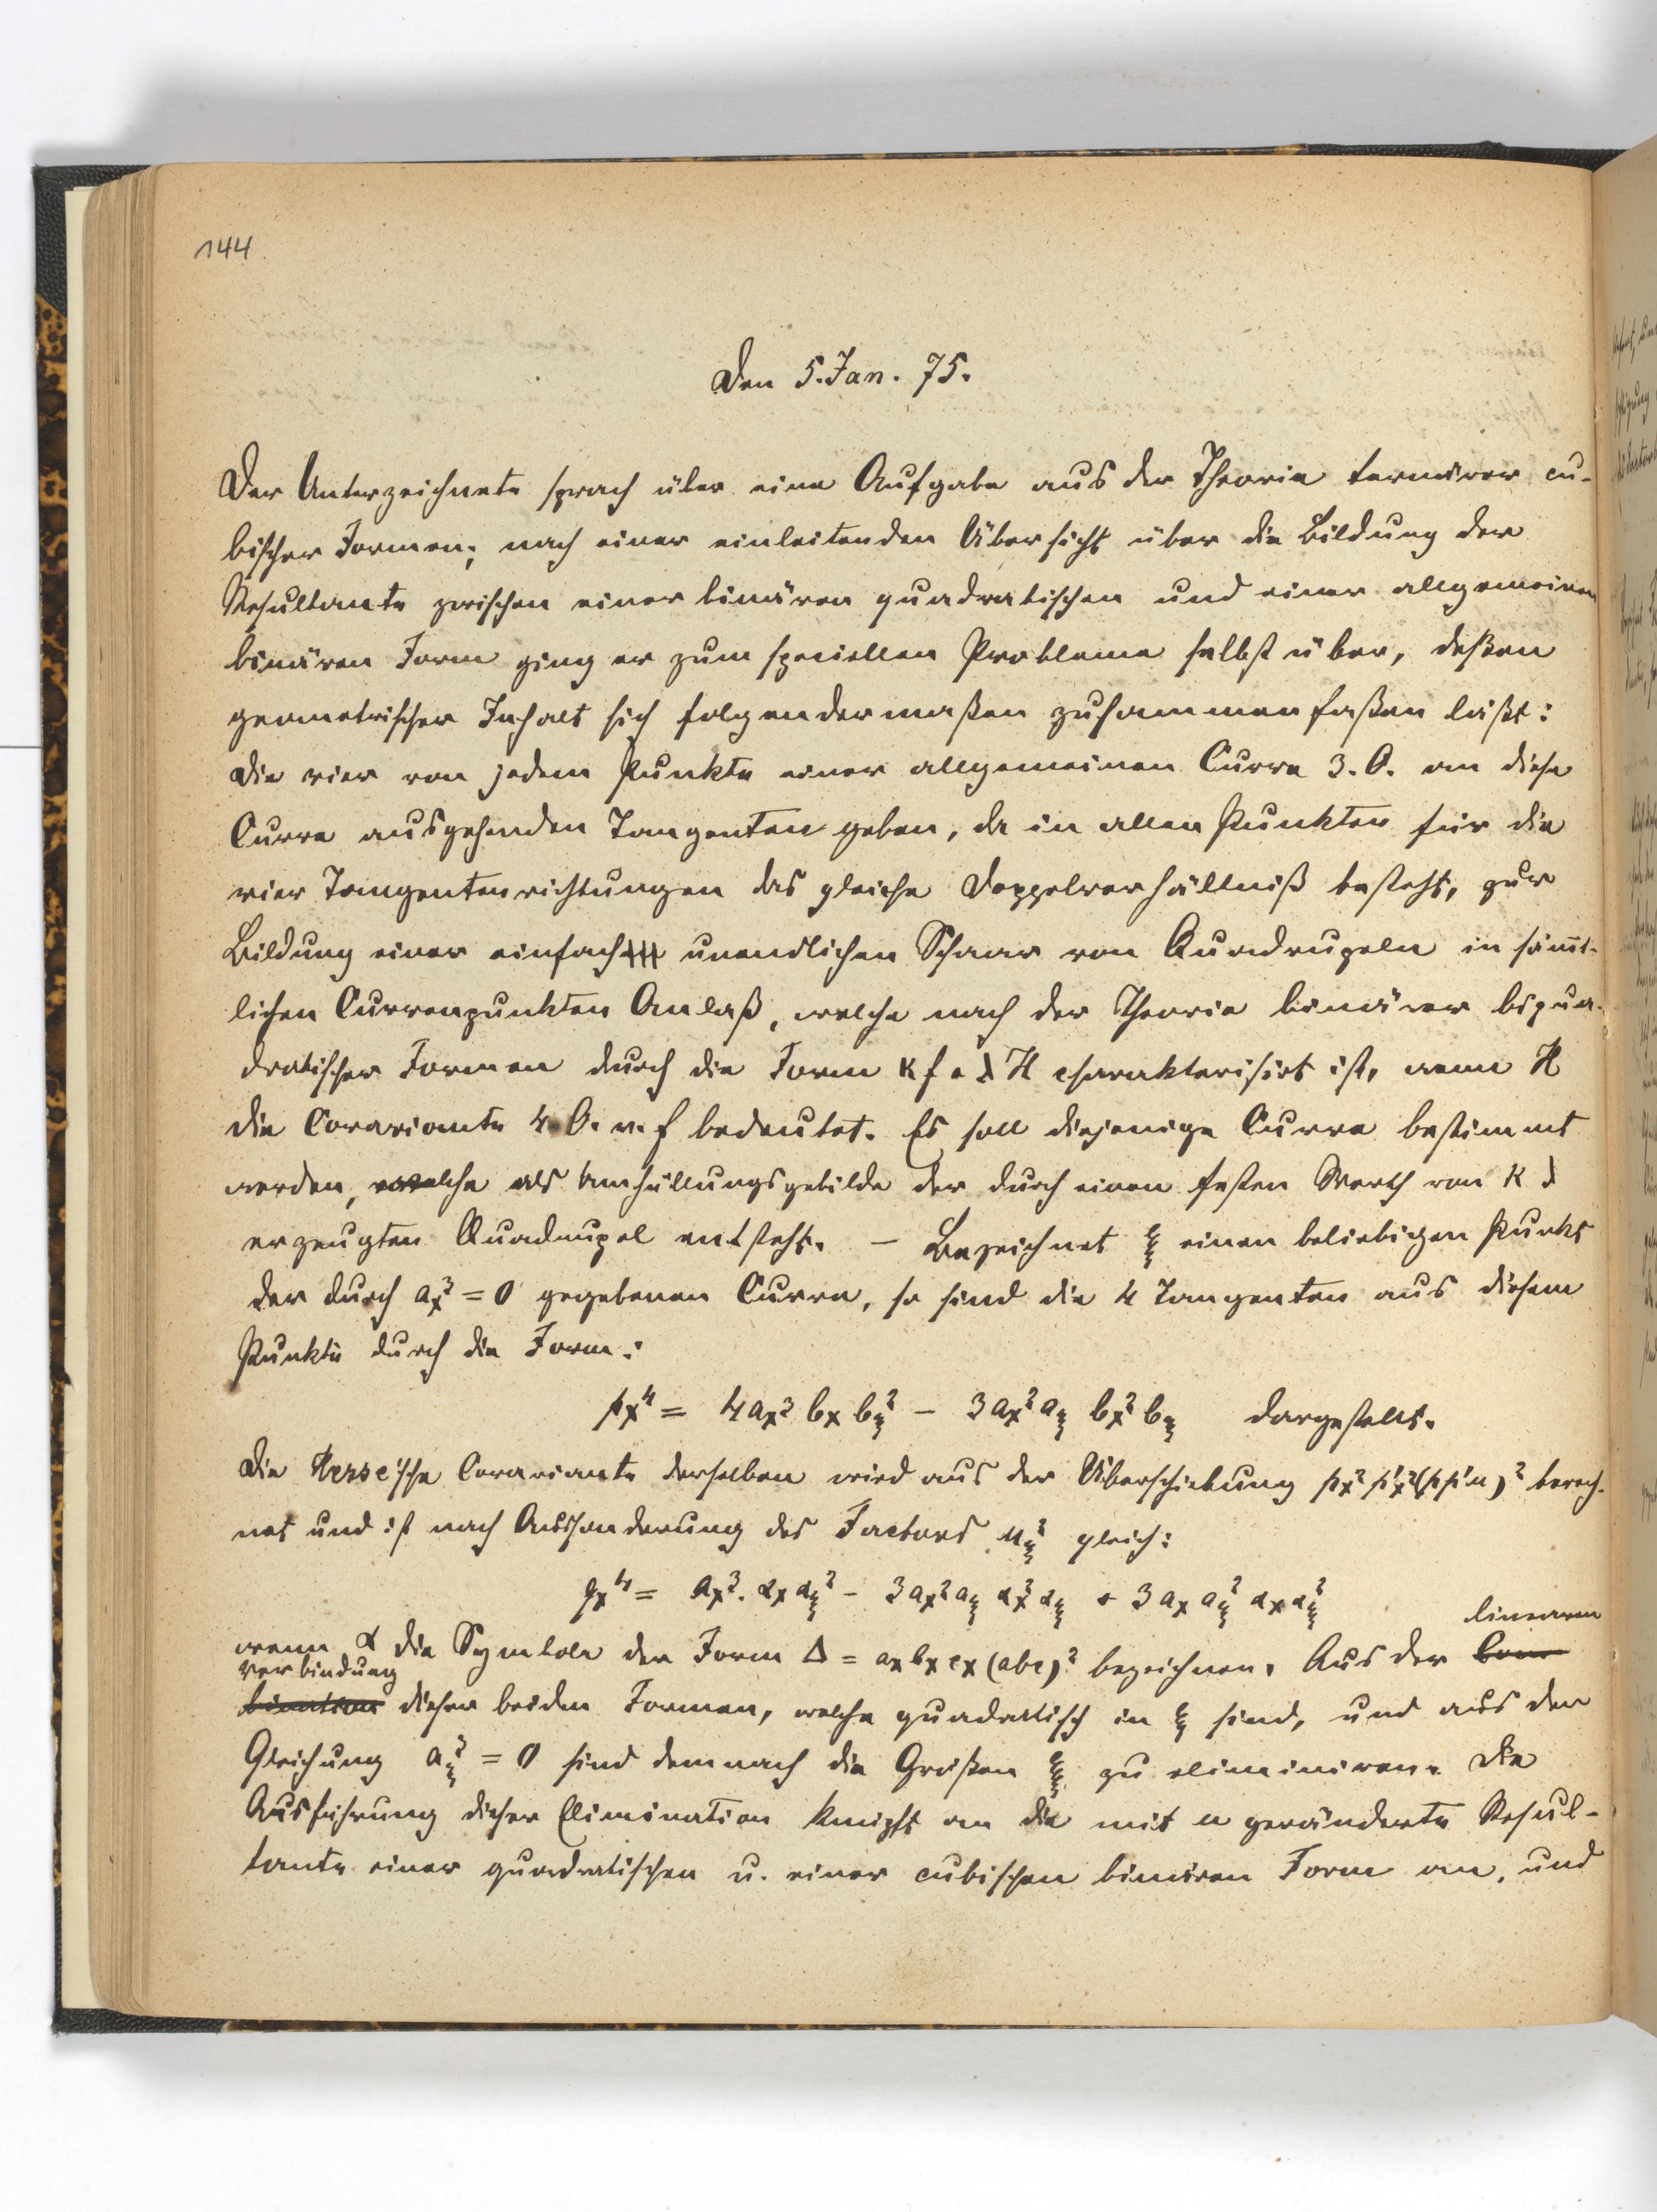 144
Den 5. Jan. 75.
Der Unterzeichnete sprach über eine Aufgabe aus der Theorie ternärer cu-
bischer Formen; nach einer einleitenden Übersicht über die Bildung der
Resultante zwischen einer binären quadratischen und einer allgemeinen
binären Form ging er zum speciellen Probleme selbst über, deßen
geometrischer Inhalt sich folgendermaßen zusammenfaßen läßt:
Die vier von jedem Punkte einer allgemeinen Curve 3. O. an diese
Curve ausgehenden Tangenten geben, da in allen Punkten für die
vier Tangentenrichtungen das gleiche Doppelverhältniß besteht, zur
Bildung einer einfach unendlichen Schaar von Quadrupeln in sämt-
lichen Curvenpunkten Anlaß, welche nach der Theorie binärer biqua-
dratischer Formen durch die Form κ f + λ H charakterisirt ist, wenn H
die Covariante 4. O. v. f bedeutet. Es soll diejenige Curve bestimmt
werden, welche als Umhüllungsgebilde der durch einen festen Werth von κ λ
erzeugten Quadrupel entsteht. – Bezeichnet ξ einen beliebigen Punkt
der durch aₓ³ = 0 gegebenen Curve, so sind die 4 Tangenten aus diesem
Punkte durch die Form:
pₓ⁴ = 4 aₓ³ bₓ b_ξ² – 3 aₓ² a_ξ bₓ² b_ξ dargestellt.
Die Hesse'sche Covariante derselben wird aus der Überschiebung pₓ² p'ₓ² (p p' u)² berech-
net und ist nach Aussonderung des Factors u_ξ² gleich:
qₓ⁴ = aₓ³. αₓ α_ξ² – 3 aₓ² a_ξ αₓ² α_ξ + 3 aₓ a_ξ² αₓ α_ξ²
linearen
wenn α die Symbole der Form Δ = aₓ bₓ cₓ (abc)² bezeichnen. Aus der Com-
Verbindung
bination dieser beiden Formen, welche quadratisch in ξ sind, und aus der
Gleichung a_ξ³ = 0 sind demnach die Größen ξ zu eliminiren. Die
Ausführung dieser Elimination knüpft an die mit u geränderte Resul-
tante einer quadratischen u. einer cubischen binären Form an, und